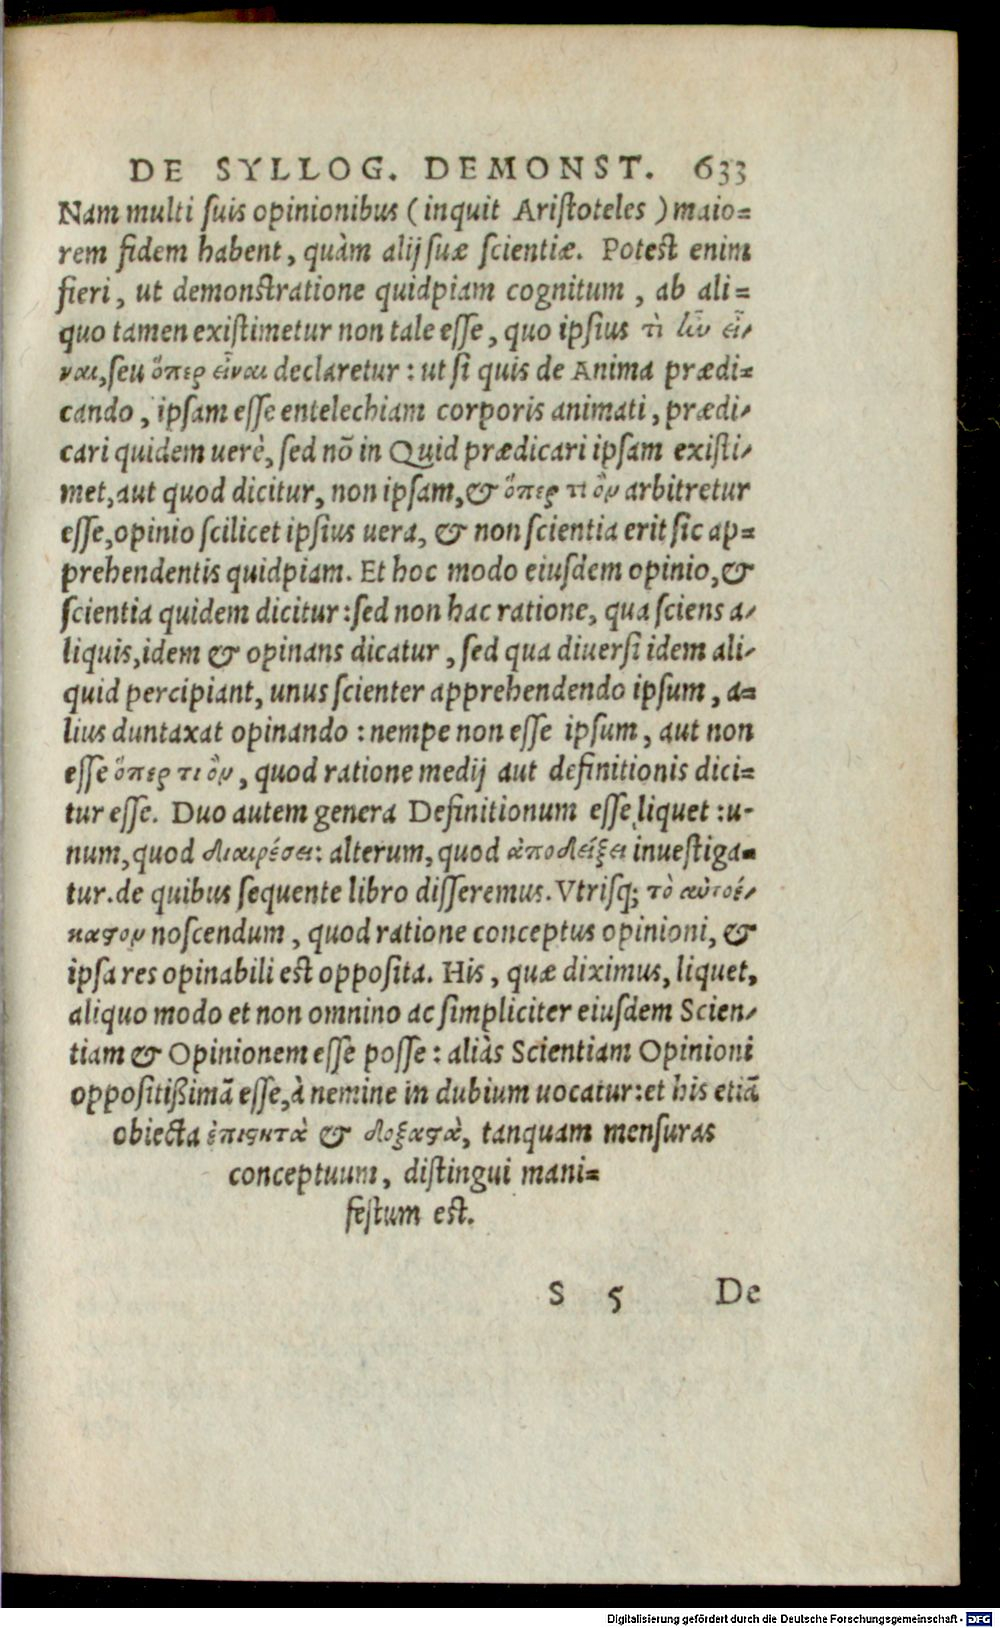 DE SYLLOG. DEMONST. 633
Nam multi suis opinionibus (inquit Aristoteles) maio=
rem fidem habent, quàm alij suæ scientiæ. Potest enim
fieri, ut demonstratione quidpiam cognitum, ab ali=
quo tamen existimetur non tale esse, quo ipsius τὶ ἦν εἶ-
ναι, seu ὅπερ εἶναι declaretur: ut si quis de Anima prædi=
cando, ipsam esse entelechiam corporis animati, prædi-
cari quidem uerè, sed nõ in Quid prædicari ipsam existi-
met, aut quod dicitur, non ipsam, & ὅπερ τι ὂν arbitretur
esse, opinio scilicet ipsius uera, & non scientia erit sic ap=
prehendentis quidpiam. Et hoc modo eiusdem opinio, &
scientia quidem dicitur: sed non hac ratione, qua sciens a-
liquis, idem & opinans dicatur, sed qua diuersi idem ali-
quid percipiant, unus scienter apprehendendo ipsum, a=
lius duntaxat opinando: nempe non esse ipsum, aut non
esse ὅπερ τι ὂν, quod ratione medij aut definitionis dici=
tur esse. Duo autem genera Definitionum esse liquet: u-
num, quod διαιρέσει: alterum, quod ἀποδείξει inuestiga=
tur. de quibus sequente libro disseremus. Vtrisq; τὸ αὐτοέ-
καστον noscendum, quod ratione conceptus opinioni, &
ipsa res opinabili est opposita. His, quæ diximus, liquet,
aliquo modo et non omnino ac simpliciter eiusdem Scien-
tiam & Opinionem esse posse: aliàs Scientiam Opinioni
oppositißimã esse, à nemine in dubium uocatur: et his etiã
obiecta ἐπιστητὰ & δοξαστὰ, tanquam mensuras
conceptuum, distingui mani=
festum est.
S 5 De
Digitalisierung gefördert durch die Deutsche Forschungsgemeinschaft - DFG